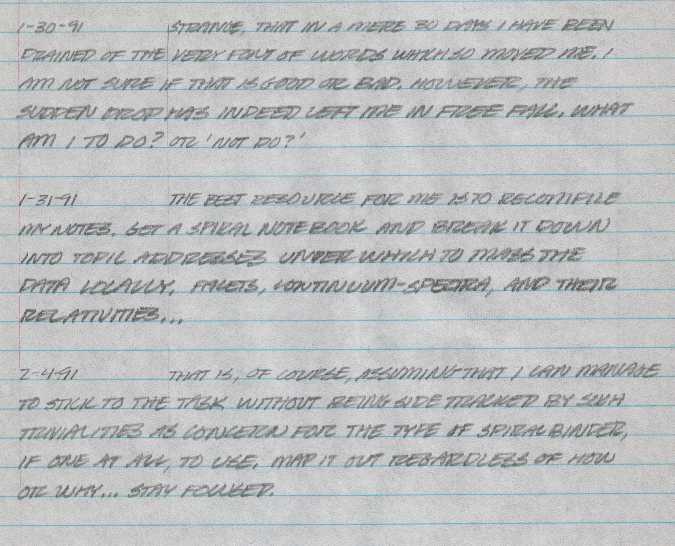 1-30-91 STRANGE, THAT IN A MERE 30 DAYS I HAVE BEEN
DRAINED OF THE VERY FONT OF WORDS WHICH SO MOVED ME. I
AM NOT SURE IF THAT IS GOOD OR BAD. HOWEVER, THE
SUDDEN DROP HAS INDEED LEFT ME IN FREE FALL. WHAT
AM I TO DO? OR 'NOT DO?'
1-31-91 THE BEST RESOURCE FOR ME IS TO RECOMPILE
MY NOTES. GET A SPIRAL NOTEBOOK AND BREAK IT DOWN
INTO TOPIC ADDRESSES UNDER WHICH TO MASS THE
DATA LOCALLY, FACETS, CONTINUUM-SPECTRA, AND THEIR
RELATIVITIES...
2-4-91 THAT IS, OF COURSE, ASSUMING THAT I CAN MANAGE
TO STICK TO THE TASK WITHOUT BEING SIDE TRACKED BY SUCH
TRIVIALITIES AS CONCERN FOR THE TYPE OF SPIRAL BINDER,
IF ONE AT ALL, TO USE. MAP IT OUT REGARDLESS OF HOW
OR WHY... STAY FOCUSED.